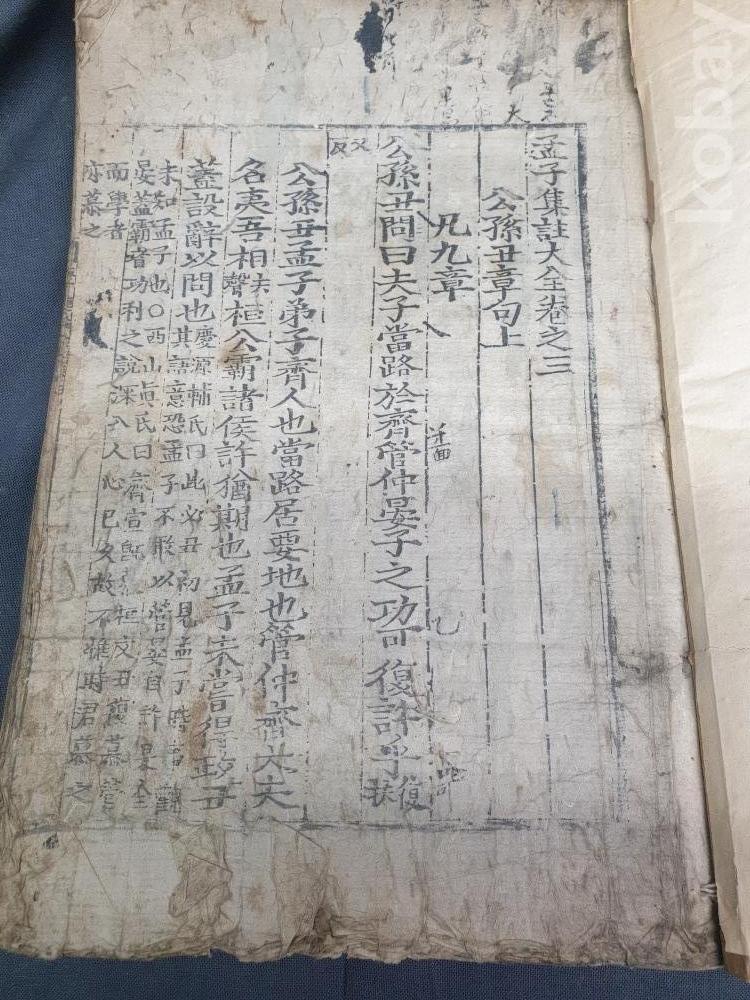 孟子集註大全卷之三
公孫丑章句上
凡九章
公孫丑問曰夫子當路於齊管仲晏子之功可復許乎復扶
又反
公孫丑孟子弟子齊人也當路居要地也管仲齊大夫
名夷吾相去聲桓公霸諸侯許猶期也孟子未嘗得政丑
蓋設辭以問也慶源輔氏曰此必丑初見孟子時
其語意恐孟子不敢以管晏自許是全
未知孟子也○西山眞氏曰齊宣
晏蓋霸者功利之說深入人心已久故不惟時君慕之
而學者
亦慕之
kobay